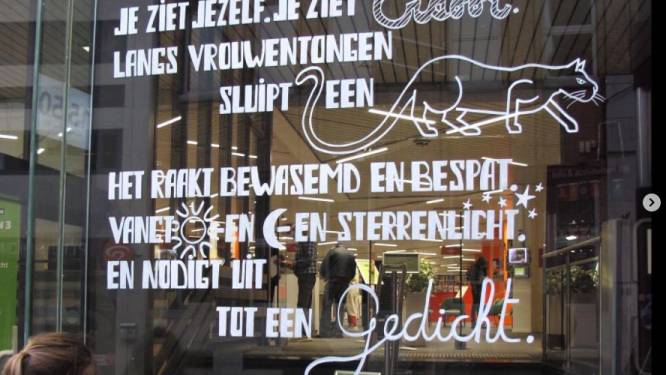 JE ZIET JEZELF. JE ZIET Erdoor.
LANGS VROUWENTONGEN
SLUIPT EEN
HET RAAKT BEWASEMD EN BESPAT.
VANGT -EN -EN STERRENLICHT.
EN NODIGT UIT
TOT EEN Gedicht.